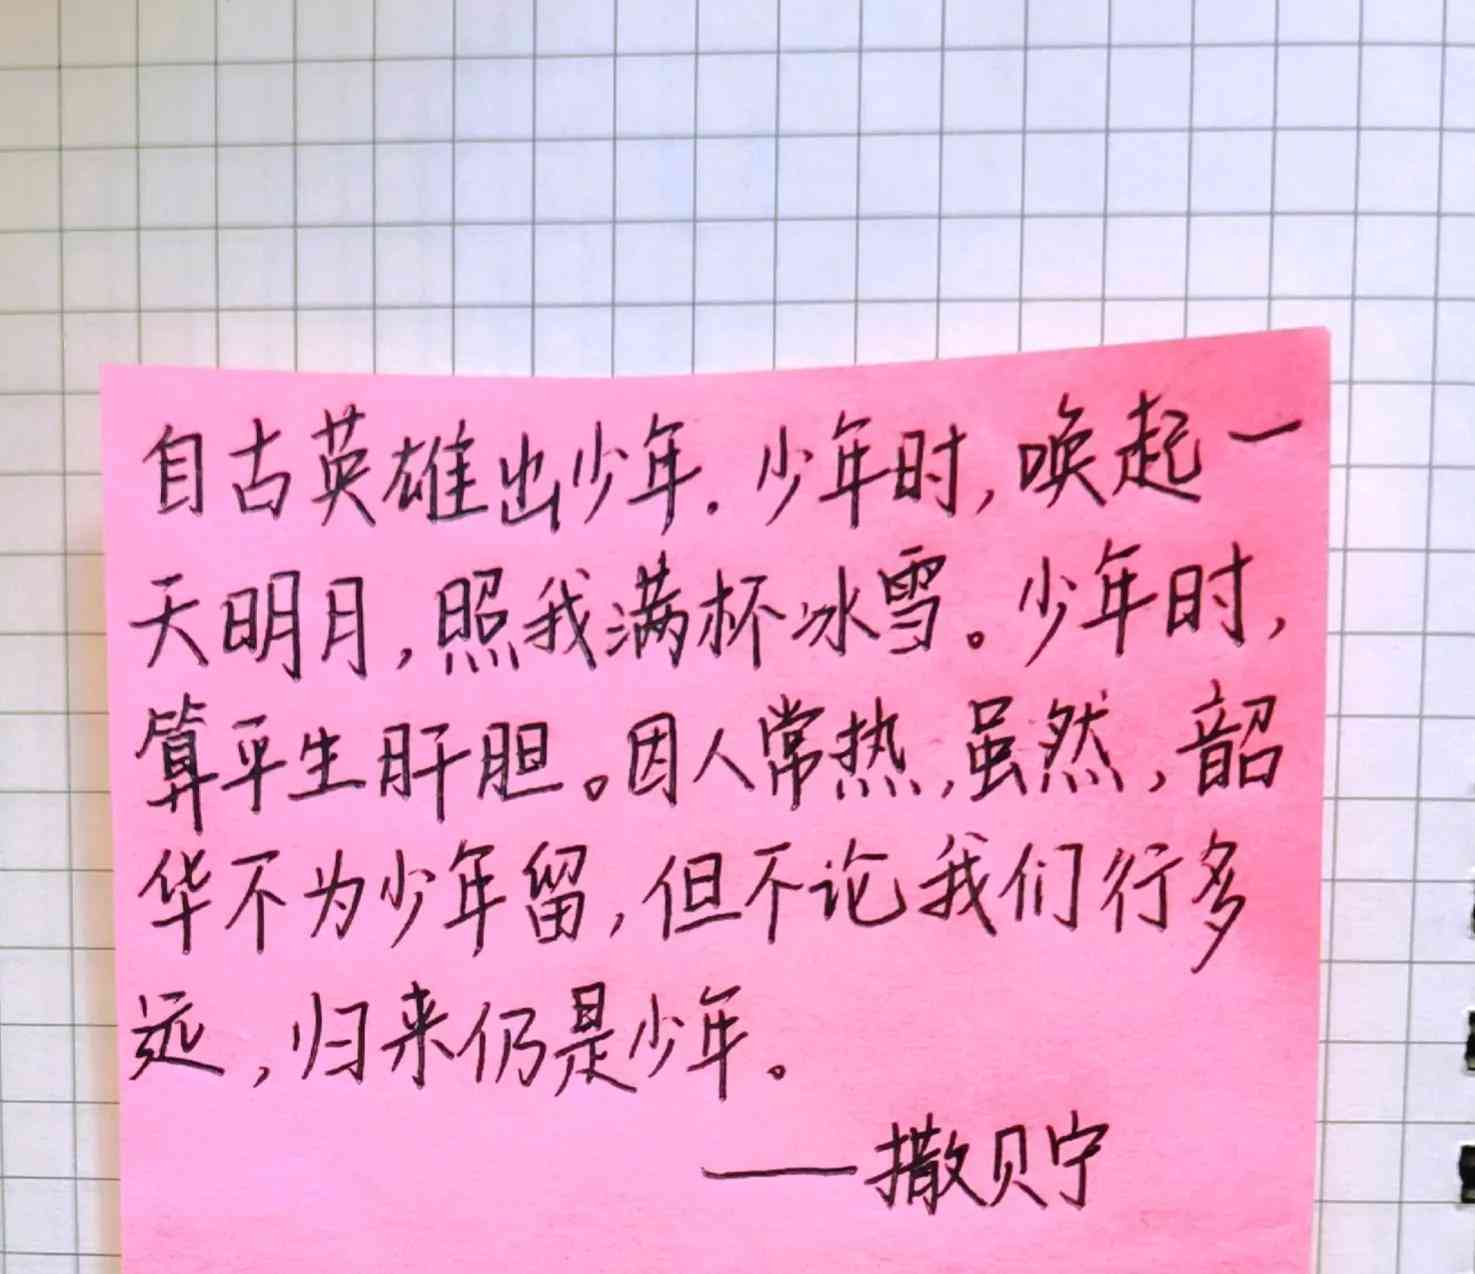 自古英雄出少年.少年时,唤起一
天明月,照我满杯冰雪。少年时,
算平生肝胆。因人常热,虽然,韶
华不为少年留,但不论我们行多
远,归来仍是少年。
——撒贝宁